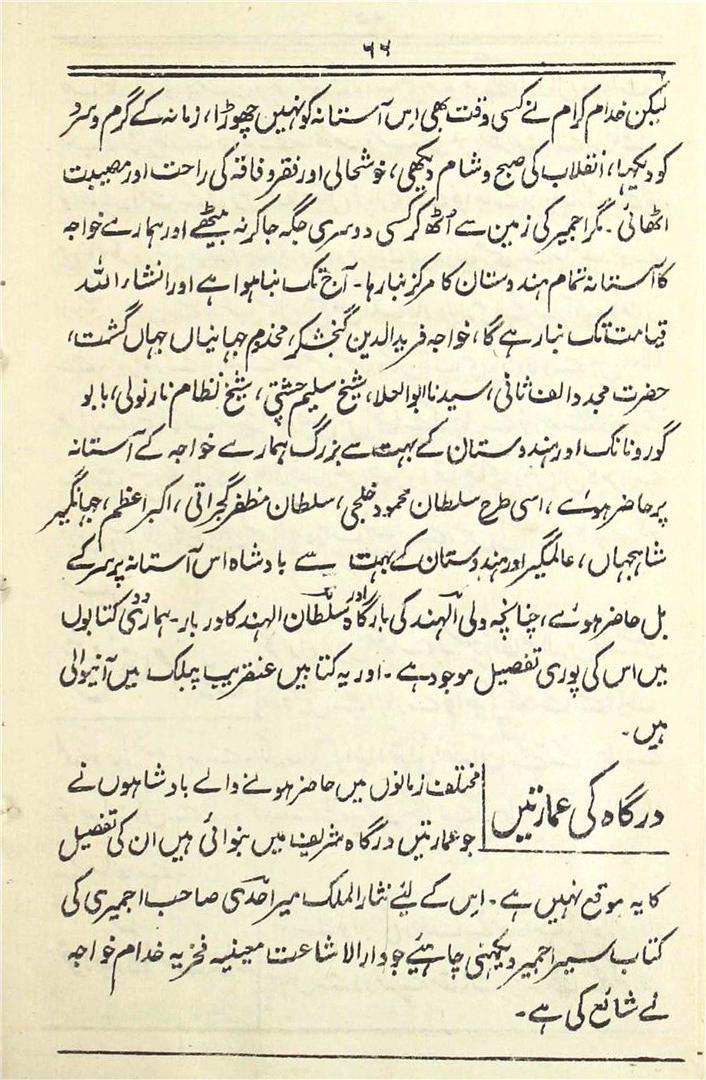 ۶۵
لیکن خدام کرام نے کسی وقت بھی اس آستانہ کو نہیں چھوڑا، زمانہ کے گرم و سرد
کو دیکھا، انقلاب کی صبح و شام دیکھی، خوشحالی اور فقر و فاقہ کی راحت اور مصیبت
اٹھائی۔ مگر اجمیر کی زمین سے اُٹھ کر کسی دوسری جگہ جا کر نہ بیٹھے اور ہمارے خواجہ
کا آستانہ تمام ہندوستان کا مرکز بنا رہا۔ آج تک بنا ہوا ہے اور انشاء اللہ
قیامت تک بنا رہے گا، خواجہ فرید الدین گنجشکر، مخدوم جہانیاں جہاں گشت،
حضرت مجدد الف ثانی، سیدنا ابوالعلا، شیخ سلیم چشتی، شیخ نظام نارنولی، بابو
گورونانک اور ہندوستان کے بہت سے بزرگ ہمارے خواجہ کے آستانہ
پر حاضر ہوئے، اسی طرح سلطان محمود خلجی، سلطان مظفر گجراتی، اکبر اعظم، جہانگیر
شاہجہاں، عالمگیر اور ہندوستان کے بہت سے بادشاہ اس آستانہ پر سر کے
بل حاضر ہوئے، چنانچہ ولی الہند کی بارگاہ اور سلطان الہند کا دربار۔ ہماری دو کتابوں
میں اس کی پوری تفصیل موجود ہے۔ اور یہ کتابیں عنقریب پبلک میں آنیوالی
ہیں۔
درگاہ کی عمارتیں
مختلف زمانوں میں حاضر ہونے والے بادشاہوں نے
جو عمارتیں درگاہ شریف میں بنوائی ہیں ان کی تفصیل
کا یہ موقع نہیں ہے۔ اس کے لئے نثار الملک میر احدی صاحب اجمیری کی
کتاب سیر اجمیر دیکھنی چاہئیے جو دارالاشاعت معینیہ فخریہ خدام خواجہ
نے شائع کی ہے۔